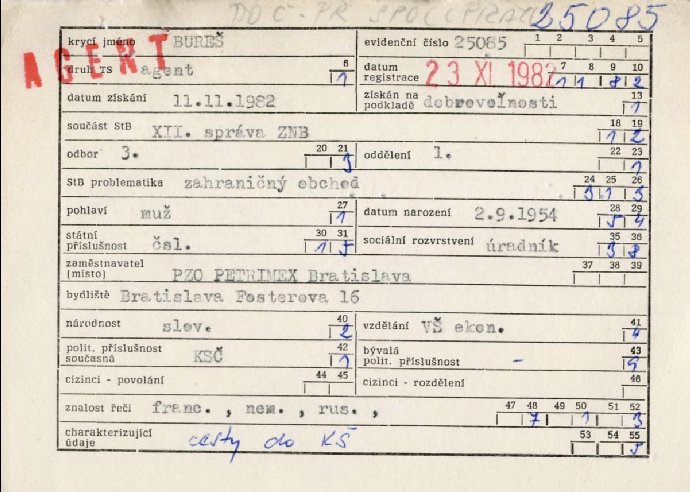 25085
AGENT
krycí jméno BUREŠ
evidenční číslo 25085 1 2 3 4 5
druh TS agent 6 1
datum registrace 23 XI. 1982 7 8 9 10 1 1 8 2
datum získání 11.11.1982
získán na podkladě dobrovoľnosti 13 1
součást StB XII. správa ZNB 18 19 1 2
odbor 3. 20 21 3
oddělení 1. 22 23 1
StB problematika zahraničný obchod 24 25 26 3 1 3
pohlaví muž 27 1
datum narození 2.9.1954 28 29 5 4
státní příslušnost čsl. 30 31 1 5
sociální rozvrstvení úradník 35 36 3 8
zaměstnavatel (místo) PZO PETRIMEX Bratislava 37 38 39
bydliště Bratislava Fosterova 16
národnost slov. 40 2
vzdělání VŠ ekon. 41 4
polit. příslušnost současná KSČ 42 1
bývalá polit. příslušnost - 43 9
cizinci - povolání 44 45
cizinci - rozdělení 46
znalost řečí franc. , nem. , rus. , 47 48 49 50 51 52 7 1 3
charakterizující údaje cesty do KŠ 53 54 55 5